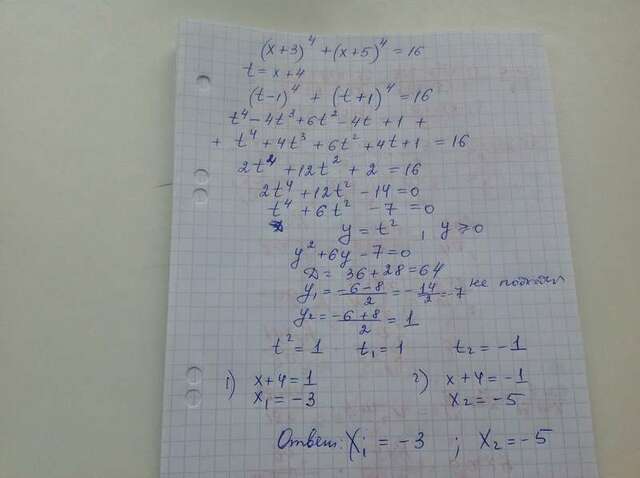 (x+3)⁴ + (x+5)⁴ = 16
t = x+4
(t-1)⁴ + (t+1)⁴ = 16
t⁴ - 4t³ + 6t² - 4t + 1 +
+ t⁴ + 4t³ + 6t² + 4t + 1 = 16
2t⁴ + 12t² + 2 = 16
2t⁴ + 12t² - 14 = 0
t⁴ + 6t² - 7 = 0
y = t² , y ≥ 0
y² + 6y - 7 = 0
D = 36 + 28 = 64
y₁ = (-6-8)/2 = -14/2 = -7 не подходит
y₂ = (-6+8)/2 = 1
t² = 1 t₁ = 1 t₂ = -1
1) x+4 = 1 2) x+4 = -1
x₁ = -3 x₂ = -5
Ответ: x₁ = -3 ; x₂ = -5